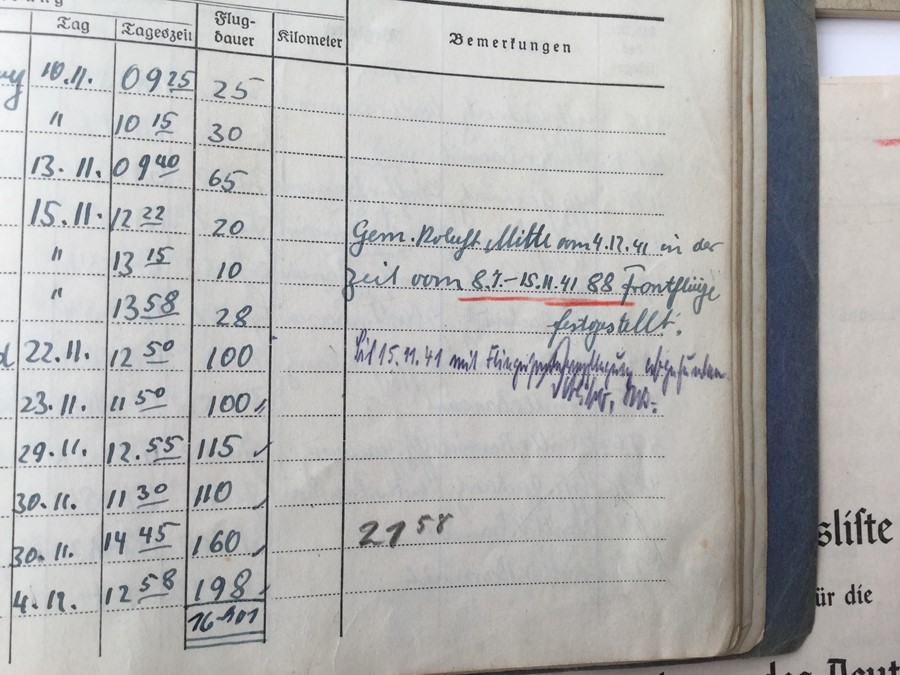 Tag Tageszeit Flug-dauer Kilometer Bemerkungen
10.11. 09 25 25
" 10 15 30
13.11. 09 40 65
15.11. 12 22 20
" 13 15 10
" 13 58 28
22.11. 12 50 100
23.11. 11 50 100
29.11. 12.55 115
30.11. 11 30 110
30.11. 14 45 160
4.12. 12 58 198
Gem. Mitte vom 4.12.41 in der
Zeit vom 8.7.–15.11.41 88 Frontflüge
festgestellt.
15.11.41 mit
21 58
sliste
ür die
des Deut